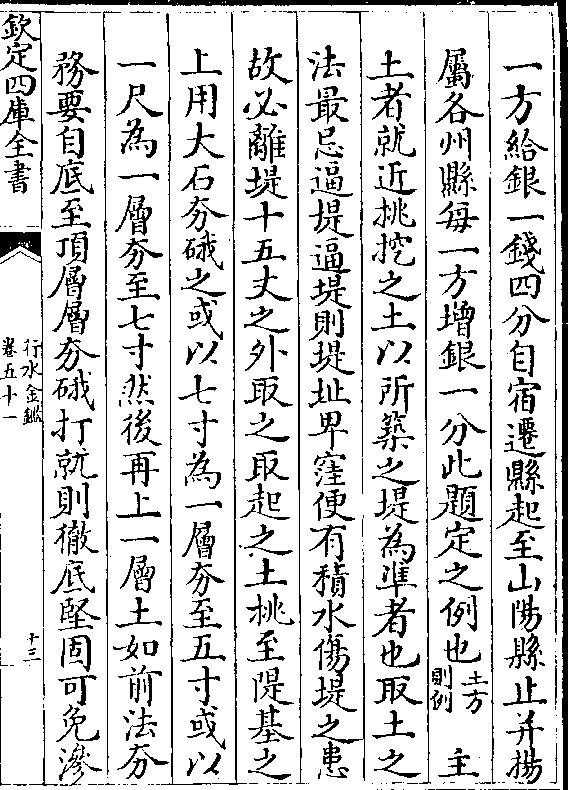 一方給銀一錢四分自宿遷縣起至山陽縣止并揚
屬各州縣每一方增銀一分此題定之例也土方則例 主
土者就近挑挖之土以所築之堤為準者也取土之
法最忌逼堤逼堤則堤址卑窪便有積水傷堤之患
故必離堤十五丈之外取之取起之土挑至隄基之
上用大石夯硪之或以七寸為一層夯至五寸或以
一尺為一層夯至七寸然後再上一層土如前法夯
務要自底至頂層層夯硪打就則徹底堅固可免滲
欽定四庫全書
行水金鑑
卷五十一
十三